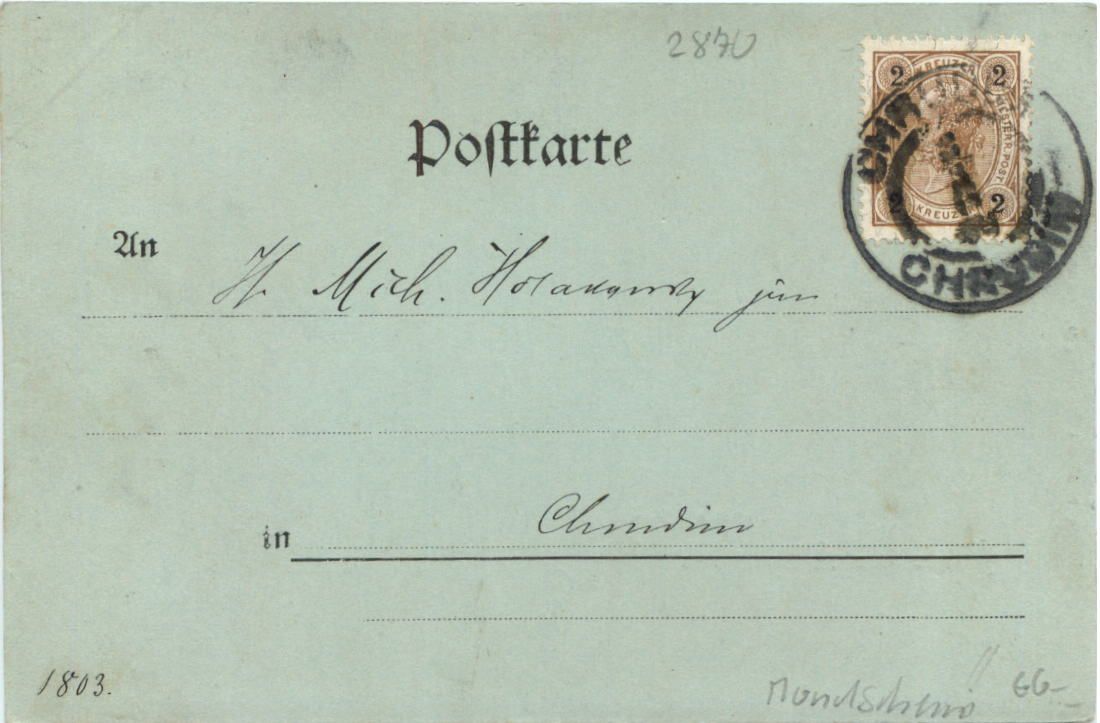 2870
2 KREUZER 2
OESTERR. POST
2 KREUZER 2
CHRUDIM
CHRUDIM
Postkarte
An H. Mich. jun
in Chrudim
1803.
Mondschein 66-